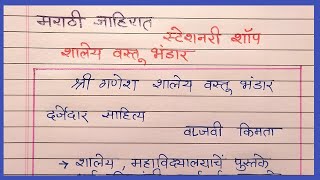 मराठी जाहिरात
स्टेशनरी शॉप
शालेय वस्तू भंडार
श्री गणेश शालेय वस्तू भंडार
दर्जेदार साहित्य
वाजवी किमता
→ शालेय, महाविद्यालयाचें पुस्तके